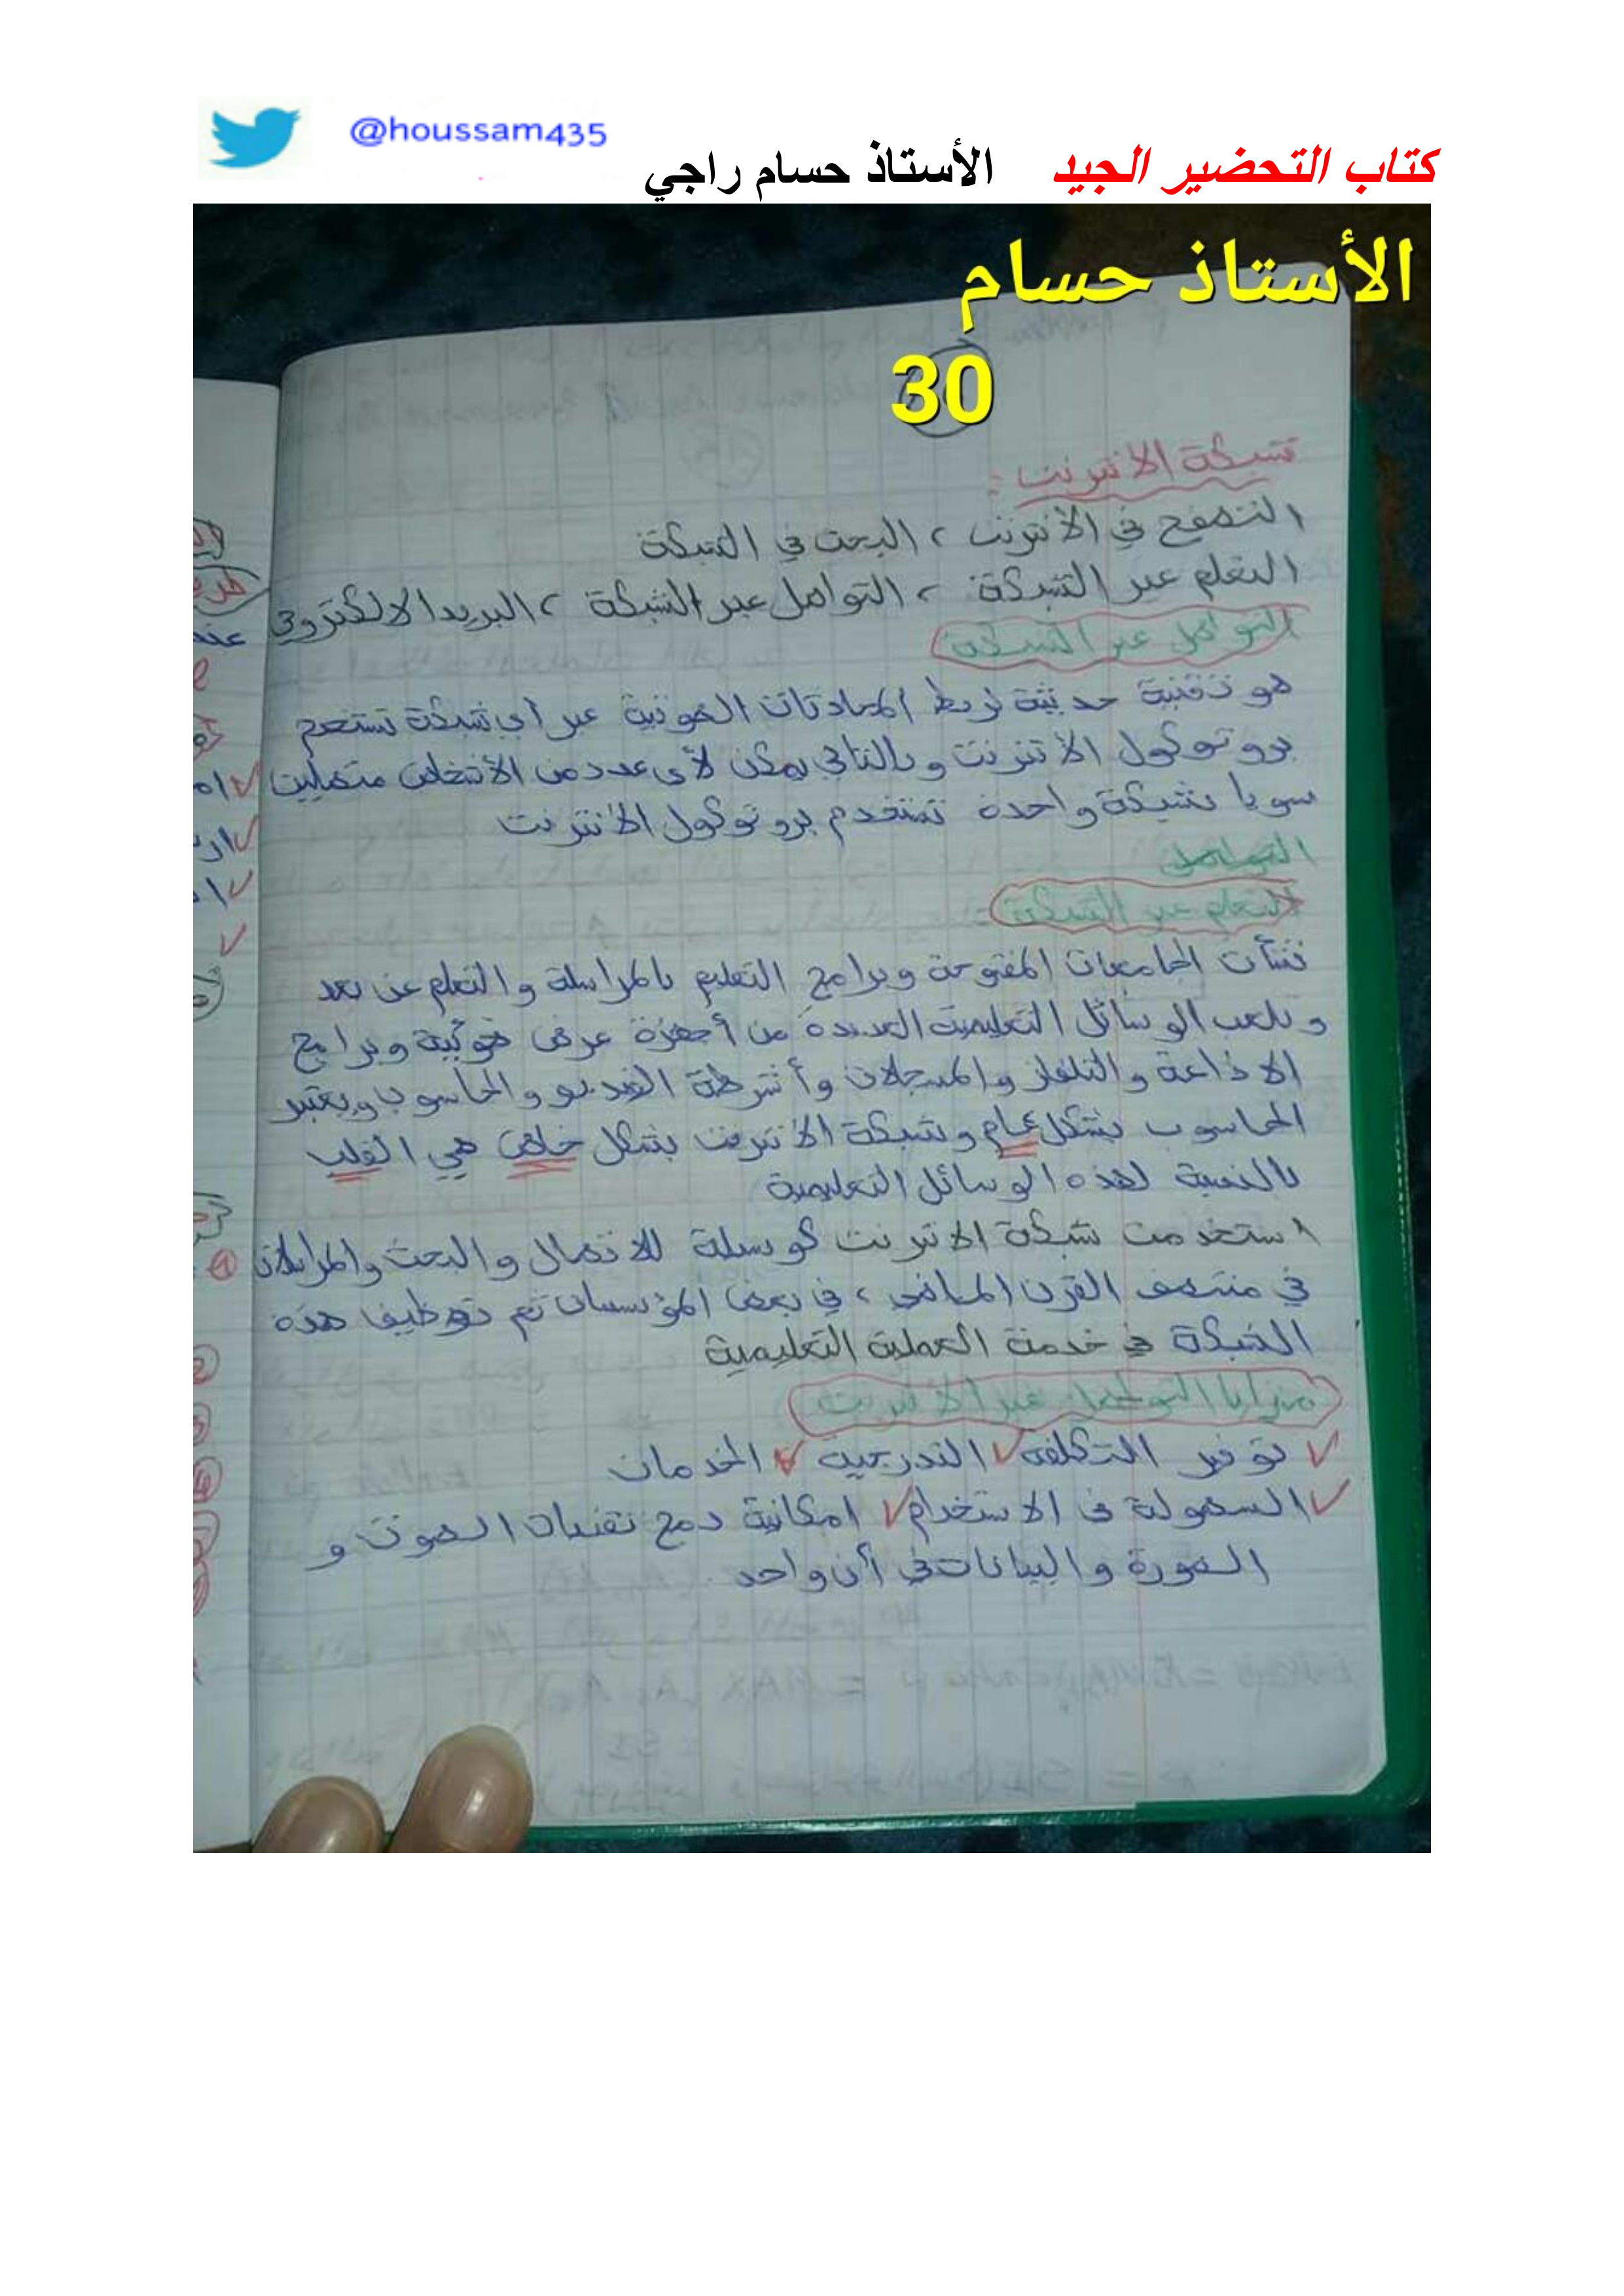 @houssam435
كتاب التحضير الجيد الأستاذ حسام راجي
الأستاذ حسام
30
شبكة الانترنت :
التصفح في الأنترنت ، البحث في الشبكة
التعلم عبر الشبكة ، التواصل عبر الشبكة ، البريد الالكتروني
التواصل عبر الشبكة
هو تقنية حديثة لربط المحادثات الصوتية عبر أي شبكة تستخدم
بروتوكول الأنترنت وبالتالي يمكن لأي عدد من الأشخاص متصلين
سويا بشبكة واحدة تستخدم بروتوكول الأنترنت
التواصل
التعلم عبر الشبكة
نشأت الجامعات المفتوحة وبرامج التعليم بالمراسلة والتعلم عن بعد
وتلعب الوسائل التعليمية العديدة من أجهزة عرض ضوئية وبرامج
الاذاعة والتلفاز والمسجلات وأشرطة الفيديو والحاسوب ويعتبر
الحاسوب بشكل عام وشبكة الأنترنت بشكل خاص هي القلب
بالنسبة لهذه الوسائل التعليمية
استخدمت شبكة الانترنت كوسيلة للاتصال والبحث والمراسلات
في منتصف القرن الماضي ، في بعض المؤسسات تم توظيف هذه
الشبكة في خدمة العملية التعليمية
مزايا التواصل عبر الأنترنت
توفير التكلفة التدريجية الخدمات
السهولة في الاستخدام امكانية دمج تقنيات الصوت و
الصورة والبيانات في أن واحد